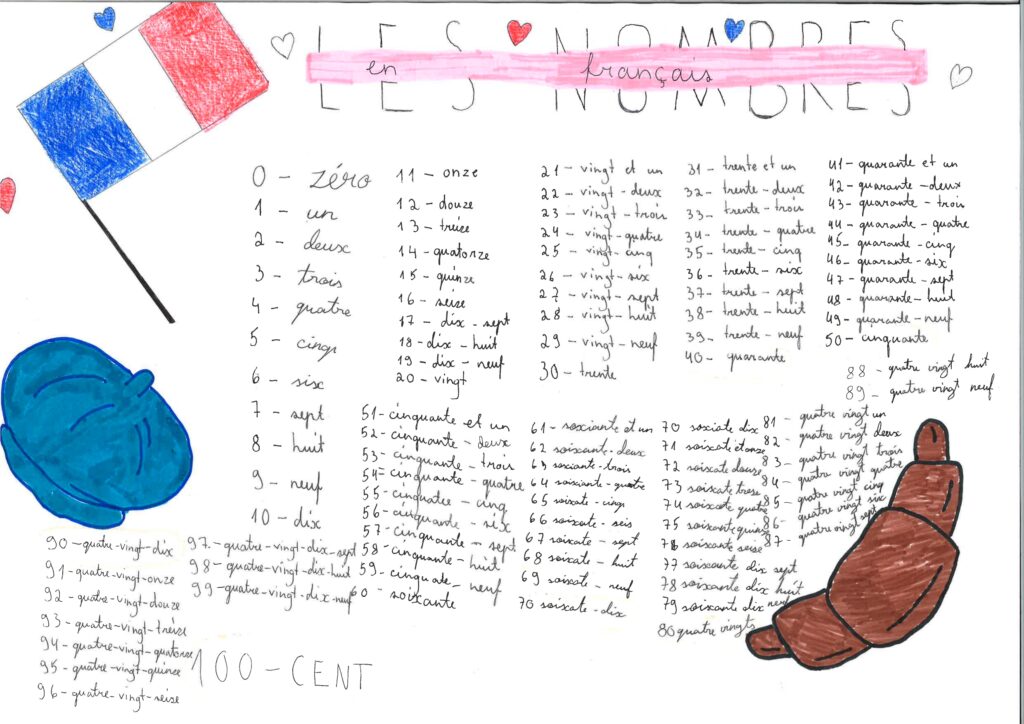 LES NOMBRES
en français
0 - zéro
1 - un
2 - deux
3 - trois
4 - quatre
5 - cinq
6 - six
7 - sept
8 - huit
9 - neuf
10 - dix
11 - onze
12 - douze
13 - tréize
14 - quatorze
15 - quinze
16 - seize
17 - dix - sept
18 - dix - huit
19 - dix - neuf
20 - vingt
21 - vingt et un
22 - vingt - deux
23 - vingt - trois
24 - vingt - quatre
25 - vingt - cinq
26 - vingt - six
27 - vingt - sept
28 - vingt - huit
29 - vingt - neuf
30 - trente
31 - trente et un
32 - trente - deux
33 - trente - trois
34 - trente - quatre
35 - trente - cinq
36 - trente - six
37 - trente - sept
38 - trente - huit
39 - trente - neuf
40 - quarante
41 - quarante et un
42 - quarante - deux
43 - quarante - trois
44 - quarante - quatre
45 - quarante - cinq
46 - quarante - six
47 - quarante - sept
48 - quarante - huit
49 - quarante - neuf
50 - cinquante
51 - cinquante et un
52 - cinquante - deux
53 - cinquante - trois
54 - cinquante - quatre
55 - cinquatee - cinq
56 - cinquante - six
57 - cinquante - sept
58 - cinquante - huit
59 - cinquate - neuf
60 - soixante
61 - sosciante et un
62 soixante - deux
63 soixiante - trois
64 soixiante - quatre
65 soixate - cinq
66 soixate - seis
67 soixate - sept
68 soixate - huit
69 soixate - neuf
70 soixate - dix
70 sosciate dix
71 soixate étonze
72 soixate douse
73 soixate trese
74 soixate quatre
75 soixante quinse
76 soixante seise
77 soixante dix sept
78 soixante dix huit
79 soixante dix neuf
80 quatre vingts
81 - quatre vingt un
82 - quatre vingt deux
83 - quatre vingt trois
84 - quatre vingt quatre
85 - quatre vingt cinq
86 - quatre vingt six
87 - quatre vingt sept
88 - quatre vingt huit
89 - quatre vingt neuf
90 - quatre-vingt-dix
91 - quatre-vingt-onze
92 - quatre-vingt-douze
93 - quatre-vingt-trèize
94 - quatre-vingt-quatorze
95 - quatre-vingt-quinze
96 - quatre-vingt-seize
97 - quatre-vingt-dix-sept
98 - quatre-vingt-dix-huit
99 - quatre-vingt-dix-neuf
100 - CENT